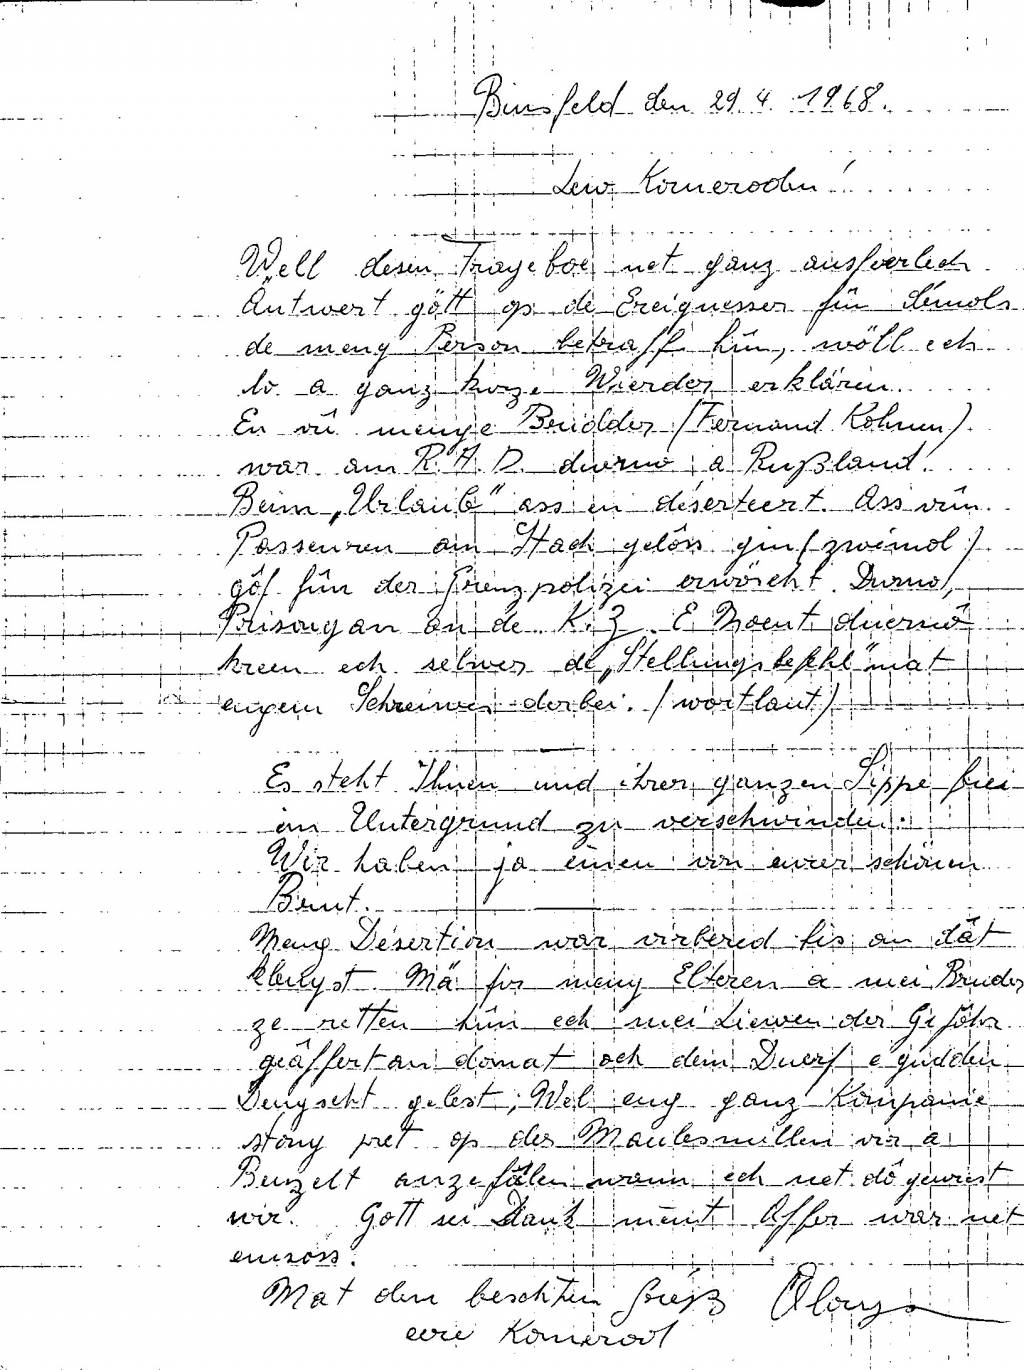 Binsfeld den 29.4.1968.
Lew Komeroden!
Well desen Frageboe net ganz ausfoerlech
Äntwert gött op de Ereignesser fun démols
de meng Person betraff hun, wöll ech
lo a ganz kurze Wierder erklären.
En vu menge Bridder (Fernand Kohnen)
war am R.A.D. duerno a Rußland.
Beim „Urlaub" ass en déserteert. Ass vun
Passeuren am Stach gelôss gin (zweemol)
gôf hun der Grenzpolizei erwöscht. Durno,
Prisongan an de K.Z. E Moent duernô
kreen ech selwer de „Stellungsbefehl" mat
engem Schreiwes derbei. (wortlaut)
Es steht Ihnen und ihrer ganzen Sippe frei
im Untergrund zu verschwinden.
Wir haben ja einen von eurer schönen
Brut.
Meng Désertion war virbered bis an dât
klengst. Mä fir meng Elteren a mei Bruder
ze retten hun ech mei Liewen der Gefôhr
geäffert an domat och dem Duerf e gudden
Dengscht gelest, Wel eng ganz Kompanie
stong pret op der Maulesmillen vir a
Benzelt anzefâlen wann ech net dô gewiest
wir. Gott sei Dank meint Affer war net
emsoss.
Mat dem beschten Grieß Aloyse
eire Komerod